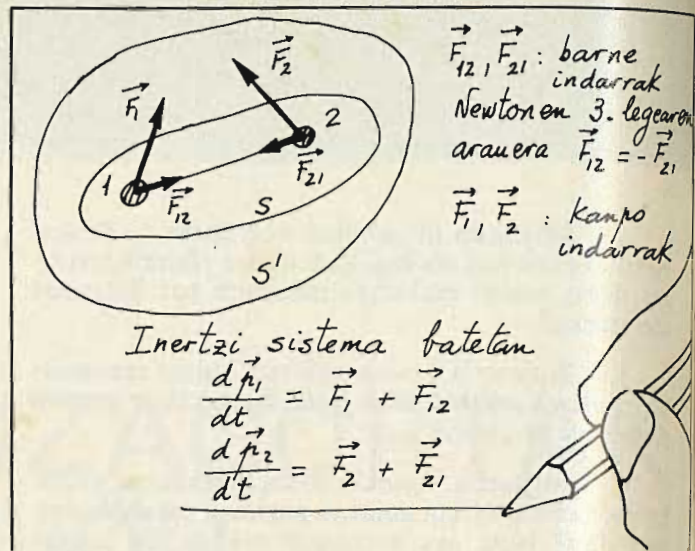 F⃗₁
F⃗₂
1
2
F⃗₁₂
F⃗₂₁
S
S'
F⃗₁₂, F⃗₂₁ : barne
indarrak
Newtonen 3. legearen
arauera F⃗₁₂ = - F⃗₂₁
F⃗₁, F⃗₂ : kanpo
indarrak
Inertzi sistema batetan
dp⃗₁/dt = F⃗₁ + F⃗₁₂
dp⃗₂/dt = F⃗₂ + F⃗₂₁